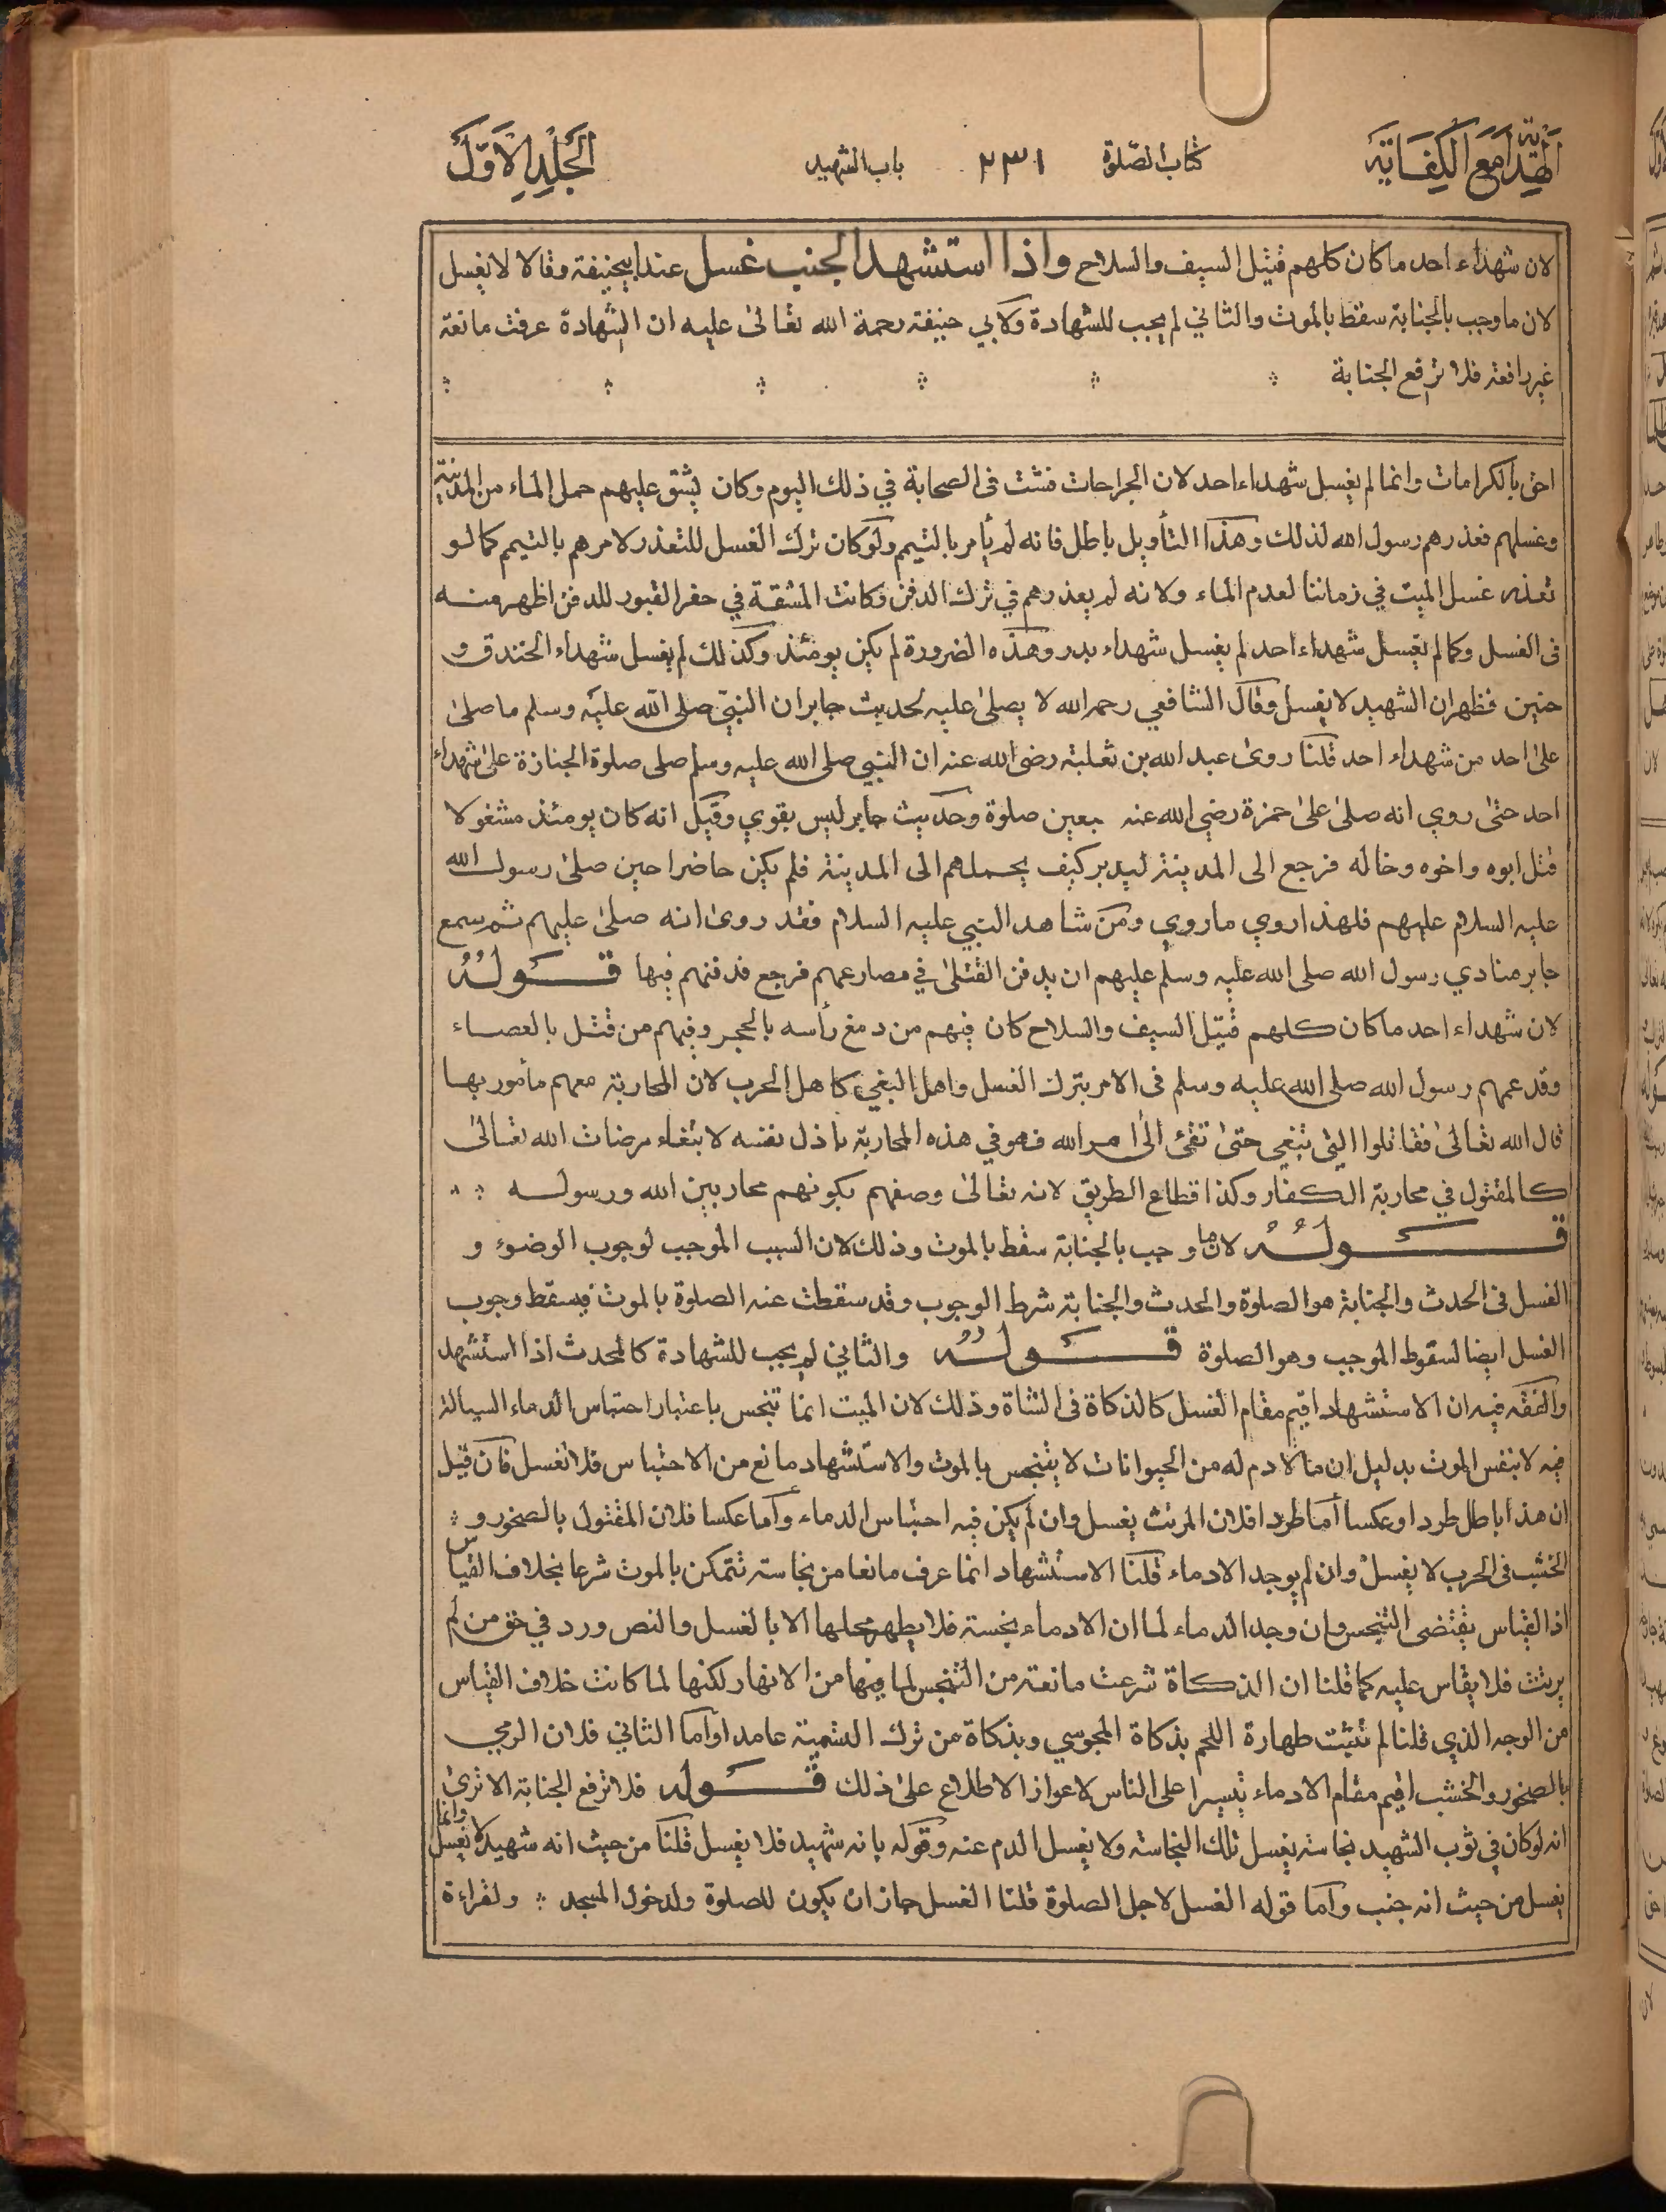 الهداية مع الكفاية كتاب الصلوة ٢٣١ باب الشهيد الجلد الاول
لان شهداء احد ما كان كلهم قتيل السيف والسلاح واذا استشهد الجنب غسل عند ابيحنيفة وقالا لا يغسل
لان ما وجب بالجنابة سقط بالموت والثاني لم يجب للشهادة ولابي حنيفة رحمة الله تعالى عليه ان الشهادة عرفت مانعة
غير رافعة فلا ترفع الجنابة
احق بالكرامات وانما لم يغسل شهداء احد لان الجراحات فشت فى الصحابة في ذلك اليوم وكان يشق عليهم حمل الماء من المدينة
وغسلهم فعذرهم رسول الله لذلك وهذا التأويل باطل فانه لم يأمر بالتيمم ولو كان ترك الغسل للتعذر لامرهم بالتيمم كما لو
تعذر غسل الميت في زماننا لعدم الماء ولانه لم يعذرهم في ترك الدفن وكانت المشقة في حفر القبور للدفن اظهر منه
فى الغسل وكما لم يغسل شهداء احد لم يغسل شهداء بدر وهذه الضرورة لم يكن يومئذ وكذلك لم يغسل شهداء الخندق و
حنين فظهر ان الشهيد لا يغسل وقال الشافعي رحمه الله لا يصلى عليه لحديث جابر ان النبي صلى الله عليه وسلم ما صلى
على احد من شهداء احد قلنا روى عبد الله بن ثعلبة رضى الله عنه ان النبي صلى الله عليه وسلم صلى صلوة الجنازة على شهداء
احد حتى روي انه صلى على حمزة رضي الله عنه بعين صلوة وحديث جابر ليس بقوي وقيل انه كان يومئذ مشغولا
قتل ابوه واخوه وخاله فرجع الى المدينة ليدبر كيف يحملهم الى المدينة فلم يكن حاضرا حين صلى رسول الله
عليه السلام عليهم فلهذا روي ما روي ومن شاهد النبي عليه السلام فقد روى انه صلى عليهم ثم سمع
جابر منادي رسول الله صلى الله عليه وسلم عليهم ان يدفن القتلى في مصارعهم فرجع فدفنهم فيها قوله
لان شهداء احد ما كان كلهم قتيل السيف والسلاح كان فيهم من دمغ رأسه بالحجر وفيهم من قتل بالعصاء
وقد عمهم رسول الله صلى الله عليه وسلم فى الامر بترك الغسل واهل البغي كاهل الحرب لان المحاربة معهم مأمور بها
قال الله تعالى فقاتلوا التي تبغي حتى تفئ الى امر الله فهو في هذه المحاربة باذل نفسه لابتغاء مرضات الله تعالى
كالمقتول في محاربة الكفار وكذا قطاع الطريق لانه تعالى وصفهم بكونهم محاربين الله ورسوله
قوله لان ما وجب بالجنابة سقط بالموت وذلك لان السبب الموجب لوجوب الوضوء و
الغسل فى الحدث والجنابة هو الصلوة والحدث والجنابة شرط الوجوب وقد سقطت عنه الصلوة بالموت فيسقط وجوب
الغسل ايضا لسقوط الموجب وهو الصلوة قوله والثاني لم يجب للشهادة كالمحدث اذا استشهد
والفقه فيه ان الاستشهاد اقيم مقام الغسل كالذكاة فى الشاة وذلك لان الميت انما تنجس باعتبار احتباس الدماء السيالة
فيه لا بنفس الموت بدليل ان ما لا دم له من الحيوانات لا يتنجس بالموت والاستشهاد مانع من الاحتباس فلا تغسل فان قيل
ان هذا باطل طردا وعكسا أما طردا فلان المرتث يغسل وان لم يكن فيه احتباس الدماء وأما عكسا فلان المقتول بالصخور و
الخشب فى الحرب لا يغسل وان لم يوجد الادماء قلنا الاستشهاد انما عرف مانعا من نجاسة تتمكن بالموت شرعا بخلاف القياس
اذ القياس يقتضى التنجس وان وجد الدماء لما ان الادماء نجسة فلا يطهر محلها الا بالغسل والنص ورد في حق من لم
يرتث فلا يقاس عليه كما قلنا ان الذكاة شرعت مانعة من التنجس لما فيها من الانهار لكنها لما كانت خلاف القياس
من الوجه الذي قلنا لم تثبت طهارة اللحم بذكاة المجوسي وبذكاة من ترك التسمية عامدا وأما الثاني فلان الرمي
بالصخور والخشب اقيم مقام الادماء تيسيرا على الناس لاعواز الاطلاع على ذلك قوله فلا ترفع الجنابة الا ترى
انه لو كان في ثوب الشهيد نجاسة يغسل تلك النجاسة ولا يغسل الدم عنه وقوله بانه شهيد فلا يغسل قلنا من حيث انه شهيد لا يغسل وانما
يغسل من حيث انه جنب وأما قوله الغسل لاجل الصلوة قلنا الغسل جاز ان يكون للصلوة ولدخول المسجد ولقراءة